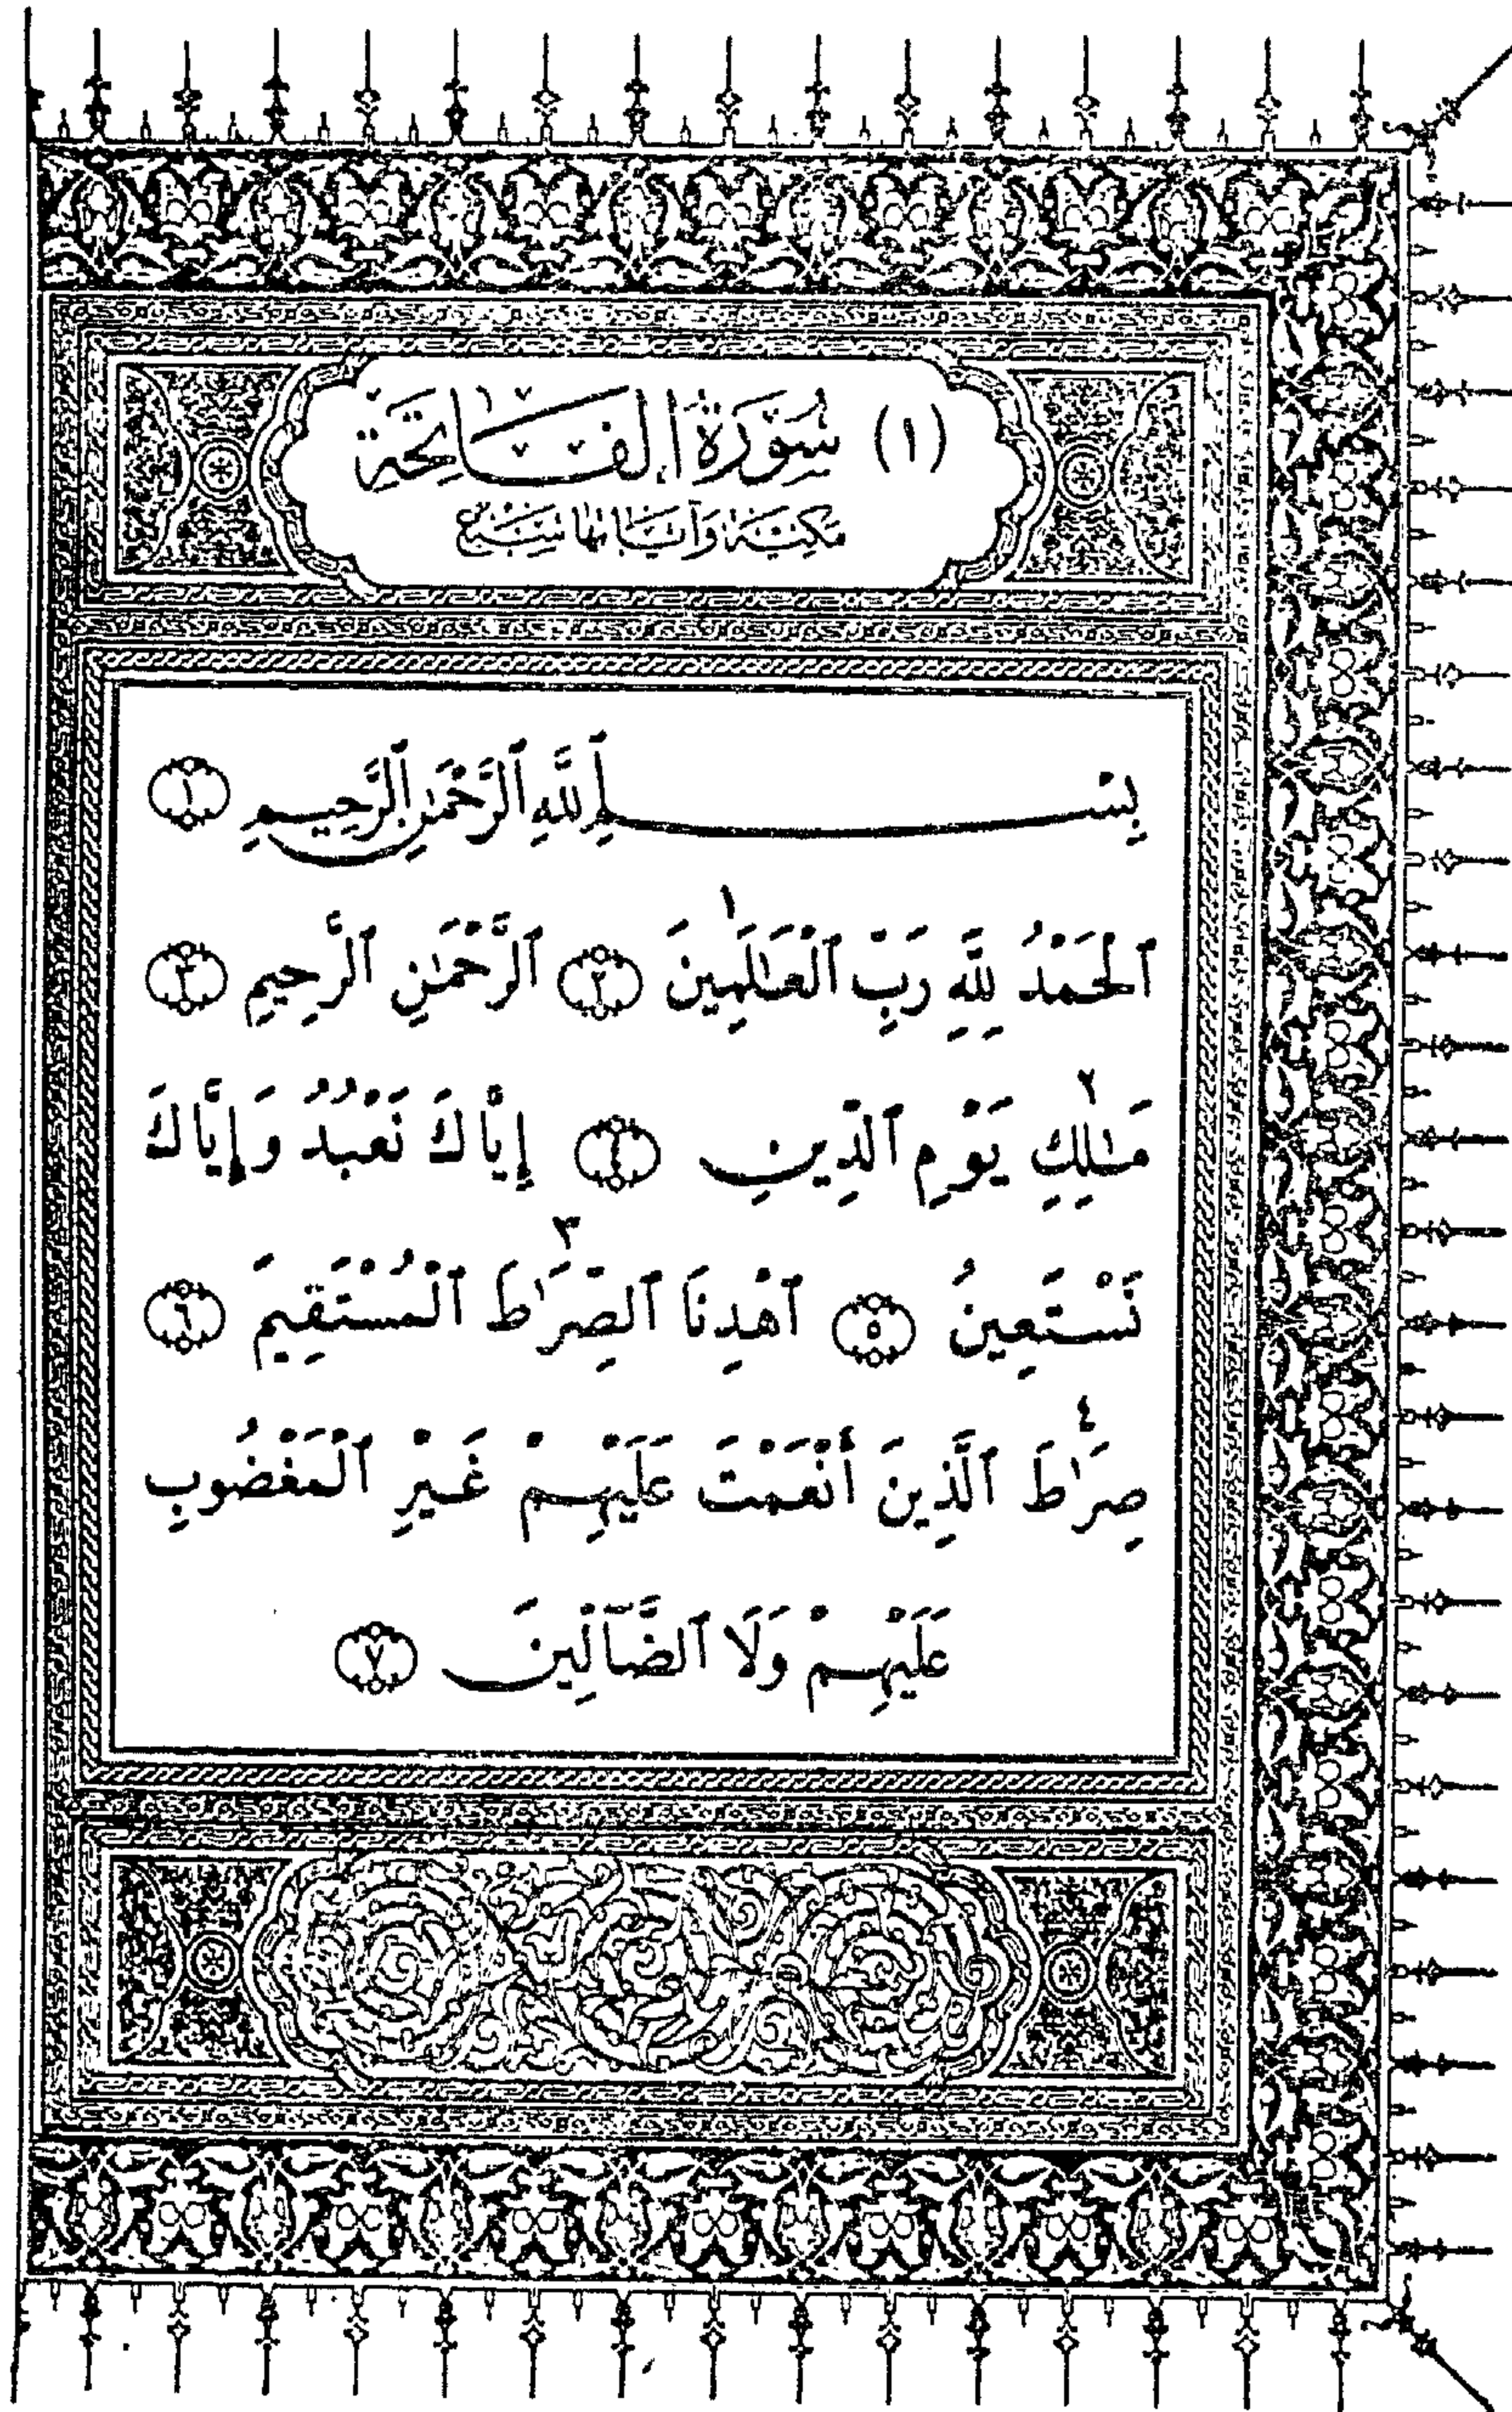 (١) سُورَةُ الفَاتِحَة
مَكِيَّة وَآيَاتُها سَبْع
بِسْمِ ٱللَّهِ ٱلرَّحْمَٰنِ ٱلرَّحِيمِ ١
١
ٱلْحَمْدُ لِلَّهِ رَبِّ ٱلْعَٰلَمِينَ ٢ ٱلرَّحْمَٰنِ ٱلرَّحِيمِ ٣
٢
مَٰلِكِ يَوْمِ ٱلدِّينِ ٤ إِيَّاكَ نَعْبُدُ وَإِيَّاكَ
٣
نَسْتَعِينُ ٥ ٱهْدِنَا ٱلصِّرَٰطَ ٱلْمُسْتَقِيمَ ٦
٤
صِرَٰطَ ٱلَّذِينَ أَنْعَمْتَ عَلَيْهِمْ غَيْرِ ٱلْمَغْضُوبِ
عَلَيْهِمْ وَلَا ٱلضَّآلِّينَ ٧